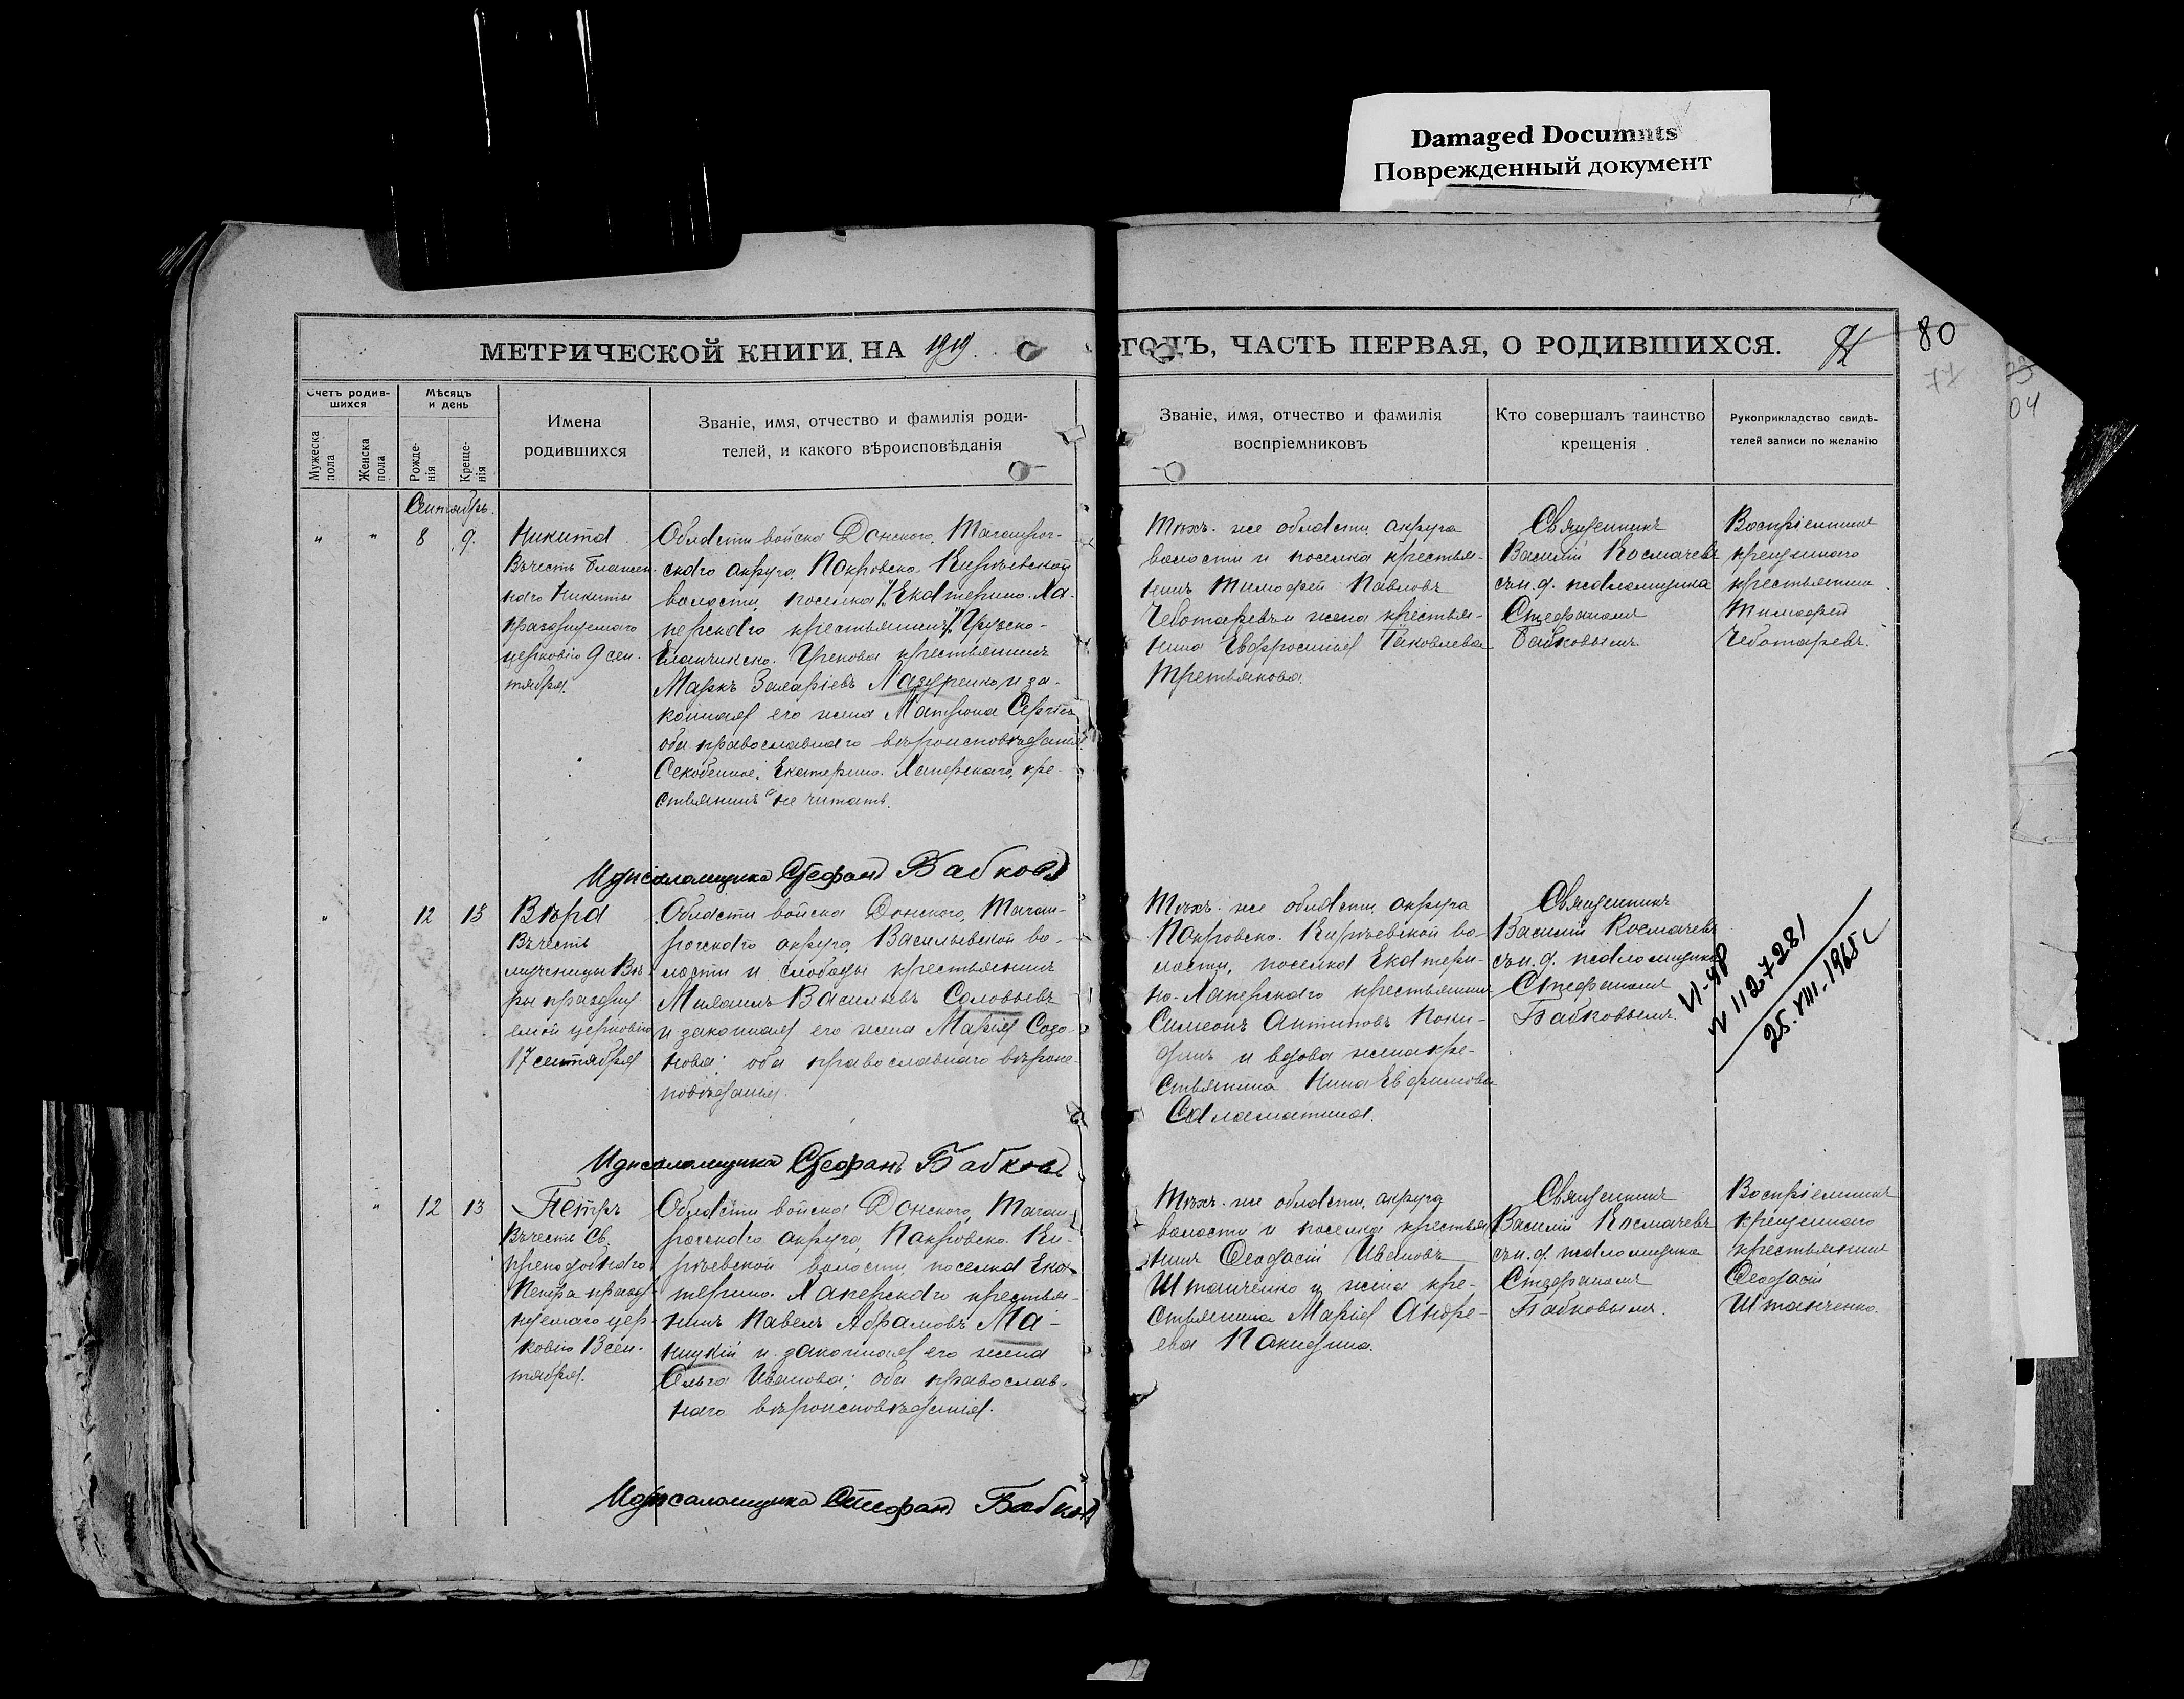 Damaged Documnts
Поврежденный документ
МЕТРИЧЕСКОЙ КНИГИ НА 1919 ГОДЪ, ЧАСТЬ ПЕРВАЯ, О РОДИВШИХСЯ.
80
77
04
Счетъ родив-
шихся
Мужеска
пола
Женска
пола
Мѣсяцъ
и день
Рожде-
нія
Креще-
нія
Имена
родившихся
Званіе, имя, отчество и фамилія роди-
телей, и какого вѣроисповѣданія
Званіе, имя, отчество и фамилія
воспріемниковъ
Кто совершалъ таинство
крещенія
Рукоприкладство свидѣ-
телей записи по желанію
Сентябрь.
" " 8 9.
Никита
Въ честь Блажен-
наго Никиты
празднуемаго
церковію 9 сен-
тября.
Области войска Донского, Таганрог-
скаго округа, Покровско-Кирѣевской
волости, поселка "Екатерино-Ха-
перскаго крестьянинъ" Грузско-
Еланчикско-Грекова крестьянинъ
Маркъ Захаріевъ Лазуренко и за-
конная его жена Матрона
оба православнаго вѣроисповѣданія
Скобенное: Екатерино-Хаперскаго, кре-
стьянинъ" не читать.
Тѣхъ-же области, округа
волости и поселка крестья-
нинъ Тимофей Павловъ
Чеботаревъ и жена крестья-
нина Евфросинія Іаковлева
Третьякова.
Священникъ
Василій Космачевъ
съ и. д. псаломщика
Стефаномъ
Бабковымъ.
Воспріемникъ
крещеннаго
крестьянинъ
Тимофей
Чеботаревъ.
И д псаломщика Стефанъ Бабковъ
" 12 13
Вѣра
Въ честь
мученицы Вѣ-
ры праздну
емой церковію
17 сентября
Области войска Донского, Таган-
рогскаго округа, Васильевской во-
лости и слободы крестьянинъ
Михаилъ Васильевъ Соловьевъ
и законная его жена Марія Созо-
нова; оба православнаго вѣроис-
повѣданія.
Тѣхъ-же области, округа
Покровско-Кирѣевской во-
лости, поселка Екатери-
но-Хаперскаго крестьянинъ
Симеонъ Антиповъ Поки-
динъ и вдова жена кре-
стьянина Нина Евфимова
Саламатина.
Священникъ
Василій Космачевъ
съ и. д. псаломщика
Стефаномъ
Бабковымъ.
N 1127281
25.VIII-1965г
И д псаломщика Стефанъ Бабковъ
" 12 13
Петръ
Въ честь Св.
преподобнаго
Петра праздн
нуемаго цер-
ковію 13 сен-
тября.
Области войска Донского, Таган-
рогскаго округа, Покровско-Ки-
рѣевской волости, поселка Ека-
терино-Хаперскаго крестья-
нинъ Павелъ Абрамовъ Ма-
ницкій и законная его жена
Ольга Иванова; оба православ-
наго вѣроисповѣданія.
Тѣхъ-же области, округа
волости и поселка крестья
нинъ Ѳеодосій Ивановъ
Штанченко и жена кре-
стьянина Марія Андре-
ева Покидина.
Священникъ
Василій Космачевъ
съ и. д. псаломщика
Стефаномъ
Бабковымъ.
Воспріемникъ
крещеннаго
крестьянинъ
Ѳеодосій
Штанченко.
И д псаломщика Стефанъ Бабковъ